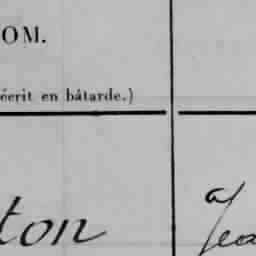 OM.
écrit en bâtarde.)
ton